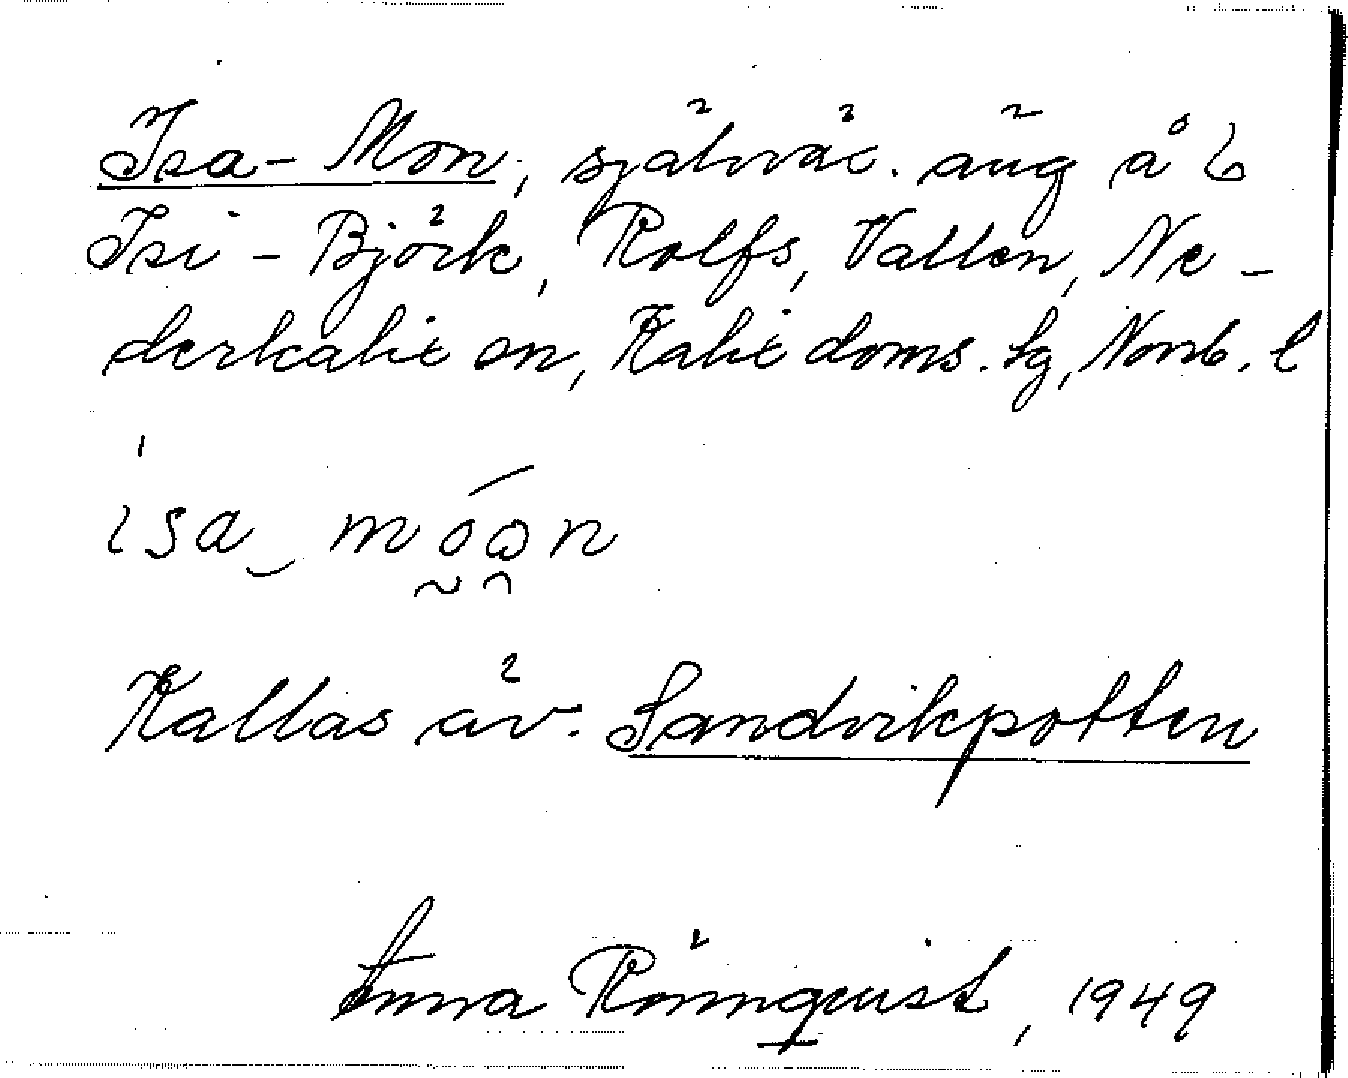 Isa-Mon, självväx. äng å 6
Isi-Björk, Rolfs, Vallen, Ne-
derkalix on, Kalix doms. lg, Norrb. l
ísa móɷn
Kallas äv. Sandvikpotten
Anna Rönnquist, 1949